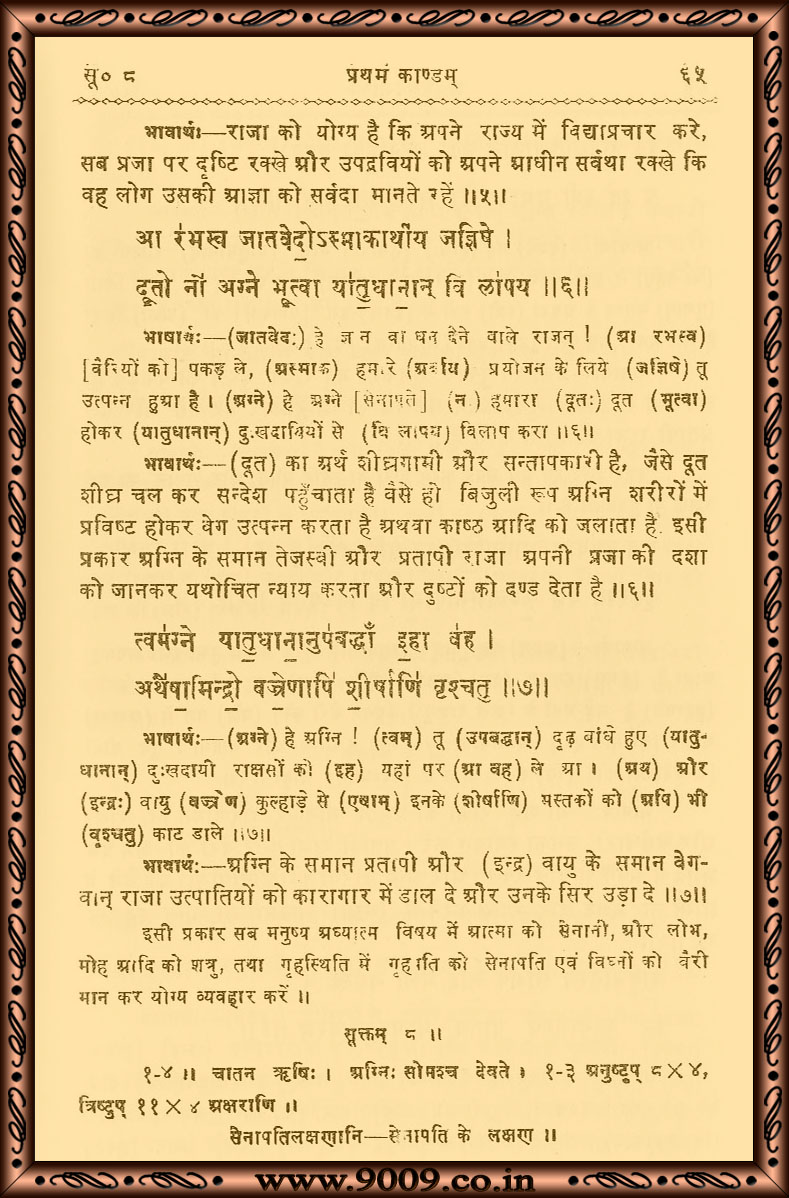 सू० ८ प्रथमं काण्डम् ६५
भावार्थः—राजा को योग्य है कि अपने राज्य में विद्याप्रचार करे,
सब प्रजा पर दृष्टि रक्खे और उपद्रवियों को अपने आधीन सर्वथा रक्खे कि
वह लोग उसकी आज्ञा को सर्वदा मानते रहें ॥५॥
आ र॑भस्व जातवेदो॒ऽस्माकार्था॑य जज्ञिषे ।
दू॒तो नो॑ अग्ने भू॒त्वा या॑तु॒धाना॒न् वि ला॑पय ॥६॥
भाषार्थः—(जातवेदः) हे ज्ञान वा धन देने वाले राजन् ! (आ रभस्व)
[वैरियों को] पकड़ ले, (अस्माक) हमारे (अर्थाय) प्रयोजन के लिये (जज्ञिषे) तू
उत्पन्न हुआ है । (अग्ने) हे अग्ने [सेनापते] (नः) हमारा (दूतः) दूत (भूत्वा)
होकर (यातुधानान्) दुःखदायियों से (वि लापय) विलाप करा ॥६॥
भावार्थः—(दूत) का अर्थ शीघ्रगामी और सन्तापकारी है, जैसे दूत
शीघ्र चल कर सन्देश पहुँचाता है वैसे ही बिजुली रूप अग्नि शरीरों में
प्रविष्ट होकर वेग उत्पन्न करता है अथवा काष्ठ आदि को जलाता है. इसी
प्रकार अग्नि के समान तेजस्वी और प्रतापी राजा अपनी प्रजा की दशा
को जानकर यथोचित न्याय करता और दुष्टों को दण्ड देता है ॥६॥
त्वम॑ग्ने यातु॒धाना॒नुप॑बद्धाँ इ॒हा व॑ह ।
अथै॑षा॒मिन्द्रो॒ वज्रे॒णापि॑ शी॒र्षाणि॑ वृश्चतु॒ ॥७॥
भाषार्थः—(अग्ने) हे अग्नि ! (त्वम्) तू (उपबद्धान्) दृढ़ बांधे हुए (यातु-
धानान्) दुःखदायी राक्षसों को (इह) यहां पर (आ वह) ले आ । (अथ) और
(इन्द्रः) वायु (वज्रेण) कुल्हाड़े से (एषाम्) इनके (शीर्षाणि) मस्तकों को (अपि) भी
(वृश्चतु) काट डाले ॥७॥
भावार्थः—अग्नि के समान प्रतापी और (इन्द्र) वायु के समान वेग-
वान् राजा उत्पातियों को कारागार में डाल दे और उनके सिर उड़ा दे ॥७॥
इसी प्रकार सब मनुष्य अध्यात्म विषय में आत्मा को सेनानी, और लोभ,
मोह आदि को शत्रु, तथा गृहस्थिति में गृहपति को सेनापति एवं विघ्नों को वैरी
मान कर योग्य व्यवहार करें ॥
सूक्तम् ८ ॥
१-४ ॥ चातन ऋषिः । अग्निः सोमश्च देवते । १-३ अनुष्टुप् ८×४,
त्रिष्टुप् ११×४ अक्षराणि ॥
सेनापतिलक्षणानि—सेनापति के लक्षण ॥
www.9009.co.in